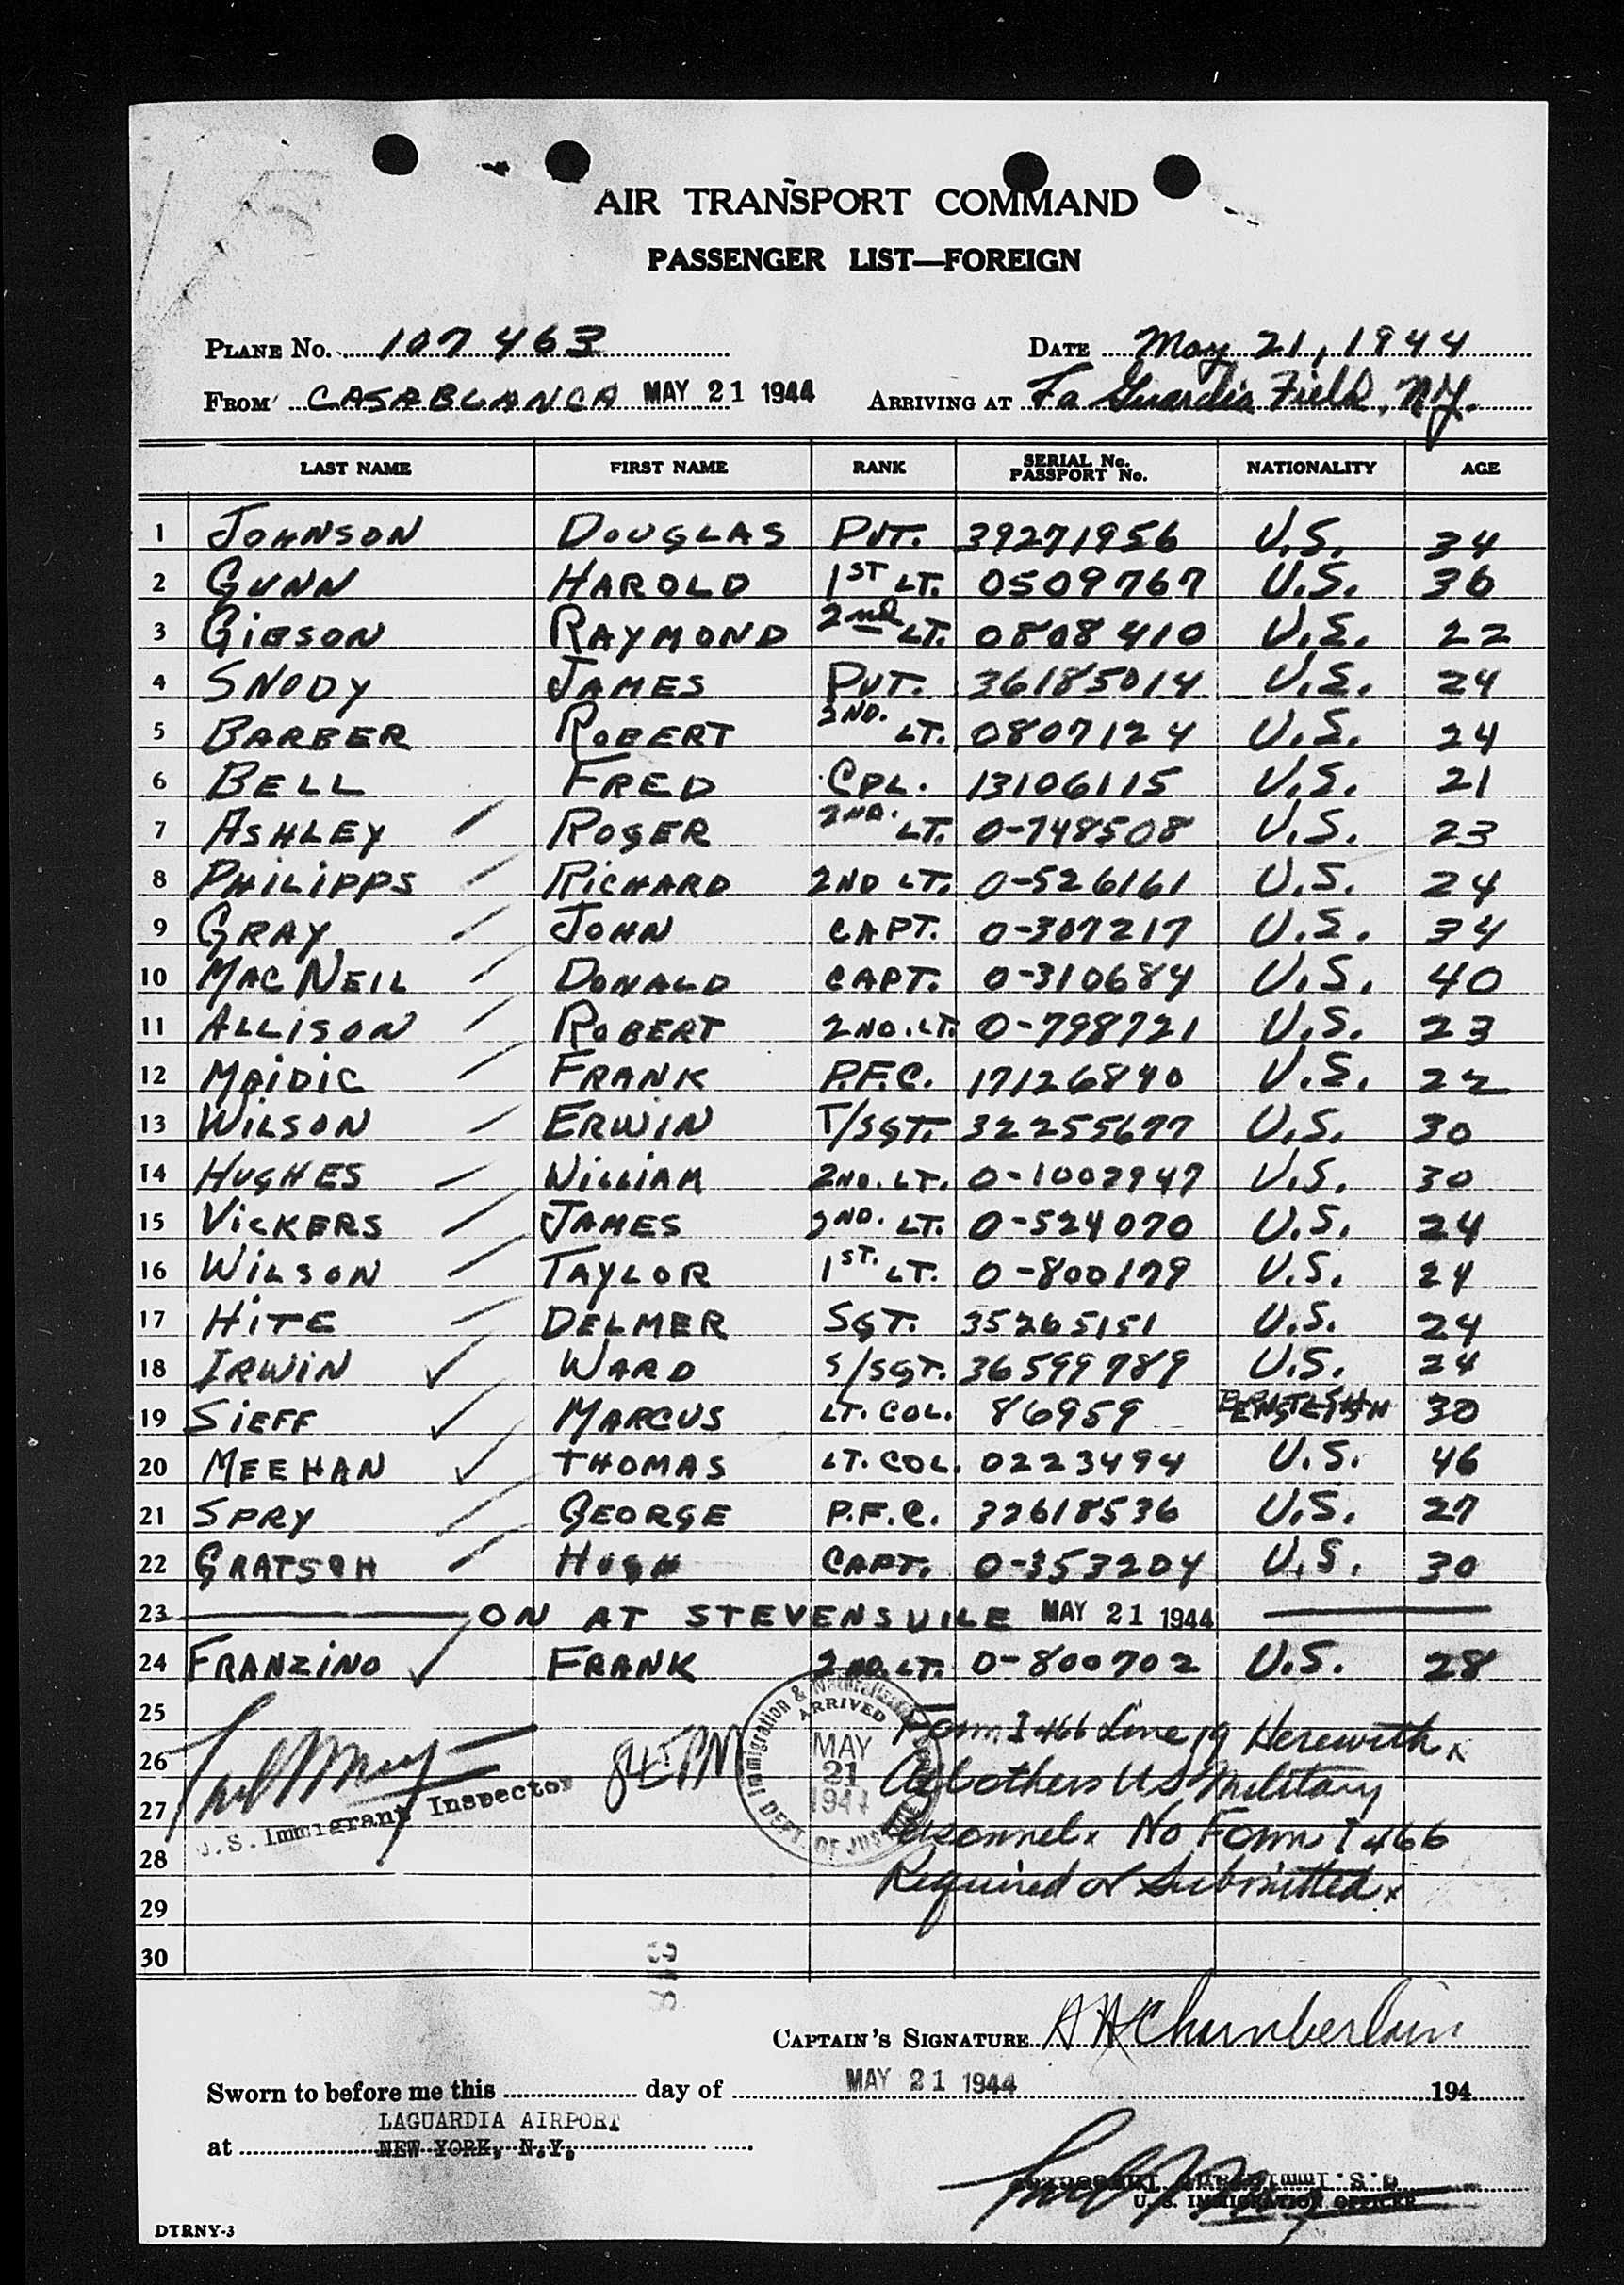 AIR TRANSPORT COMMAND
PASSENGER LIST—FOREIGN
PLANE No. 107463 DATE May 21, 1944
FROM CASABLANCA MAY 21 1944 ARRIVING AT La Guardia Field, N.Y.
LAST NAME FIRST NAME RANK SERIAL No. PASSPORT No. NATIONALITY AGE
1 JOHNSON DOUGLAS PVT. 39271956 U.S. 34
2 GUNN HAROLD 1ST LT. 0509767 U.S. 36
3 GIBSON RAYMOND 2nd LT. 0808410 U.S. 22
4 SNODY JAMES PVT. 36185014 U.S. 24
5 BARBER ROBERT 2ND. LT. 0807124 U.S. 24
6 BELL FRED CPL. 13106115 U.S. 21
7 ASHLEY ROGER 2ND. LT. 0-748508 U.S. 23
8 PHILIPPS RICHARD 2ND LT. 0-526161 U.S. 24
9 GRAY JOHN CAPT. 0-307217 U.S. 34
10 MACNEIL DONALD CAPT. 0-310684 U.S. 40
11 ALLISON ROBERT 2ND. LT. 0-798721 U.S. 23
12 MAIDIC FRANK P.F.C. 17126840 U.S. 22
13 WILSON ERWIN T/SGT. 32255677 U.S. 30
14 HUGHES WILLIAM 2ND. LT. 0-1002947 U.S. 30
15 VICKERS JAMES 2ND. LT. 0-524070 U.S. 24
16 WILSON TAYLOR 1ST. LT. 0-800179 U.S. 24
17 HITE DELMER SGT. 35265151 U.S. 24
18 IRWIN WARD S/SGT. 36599789 U.S. 24
19 SIEFF MARCUS LT. COL. 86959 30
20 MEEHAN THOMAS LT. COL. 0223494 U.S. 46
21 SPRY GEORGE P.F.C. 32618536 U.S. 27
22 GRATSCH HUGH CAPT. 0-353204 U.S. 30
23 ON AT STEVENSVILE MAY 21 1944
24 FRANZINO FRANK 2ND. LT. 0-800702 U.S. 28
25 Form I 466 Line 19 Herewith x
26 845 PM All others US Military
27 U.S. Immigrant Inspector Personnel x No Form I 466
28 Required or Submitted x
29
30
Immigration & Naturalization ARRIVED MAY 21 1944 DEPT. OF JUSTICE
CAPTAIN'S SIGNATURE A H Chamberlain
Sworn to before me this day of MAY 21 1944 194
LAGUARDIA AIRPORT
at NEW YORK, N.Y.
U. S. IMMIGRATION OFFICER
DTRNY-3